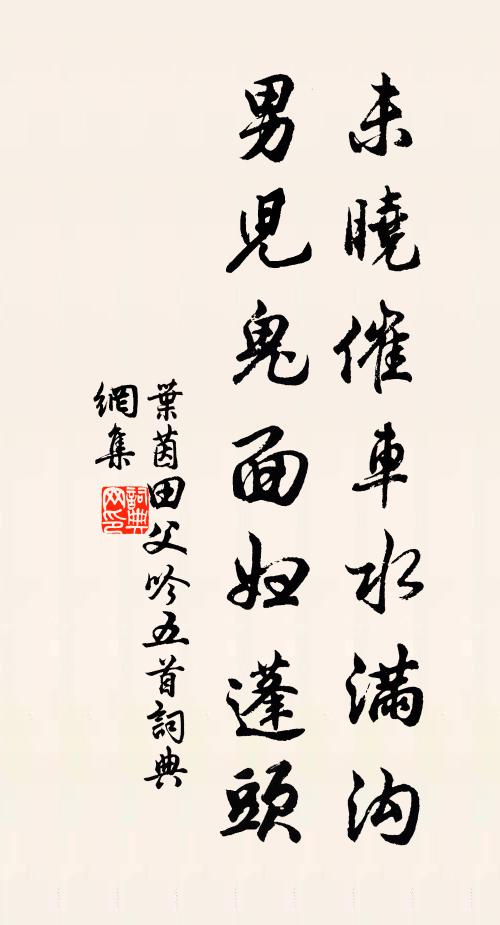 未曉催車水滿沟
男児鬼面妇蓬頭
葉茵田父吟五首詞典
網集
詞典网印